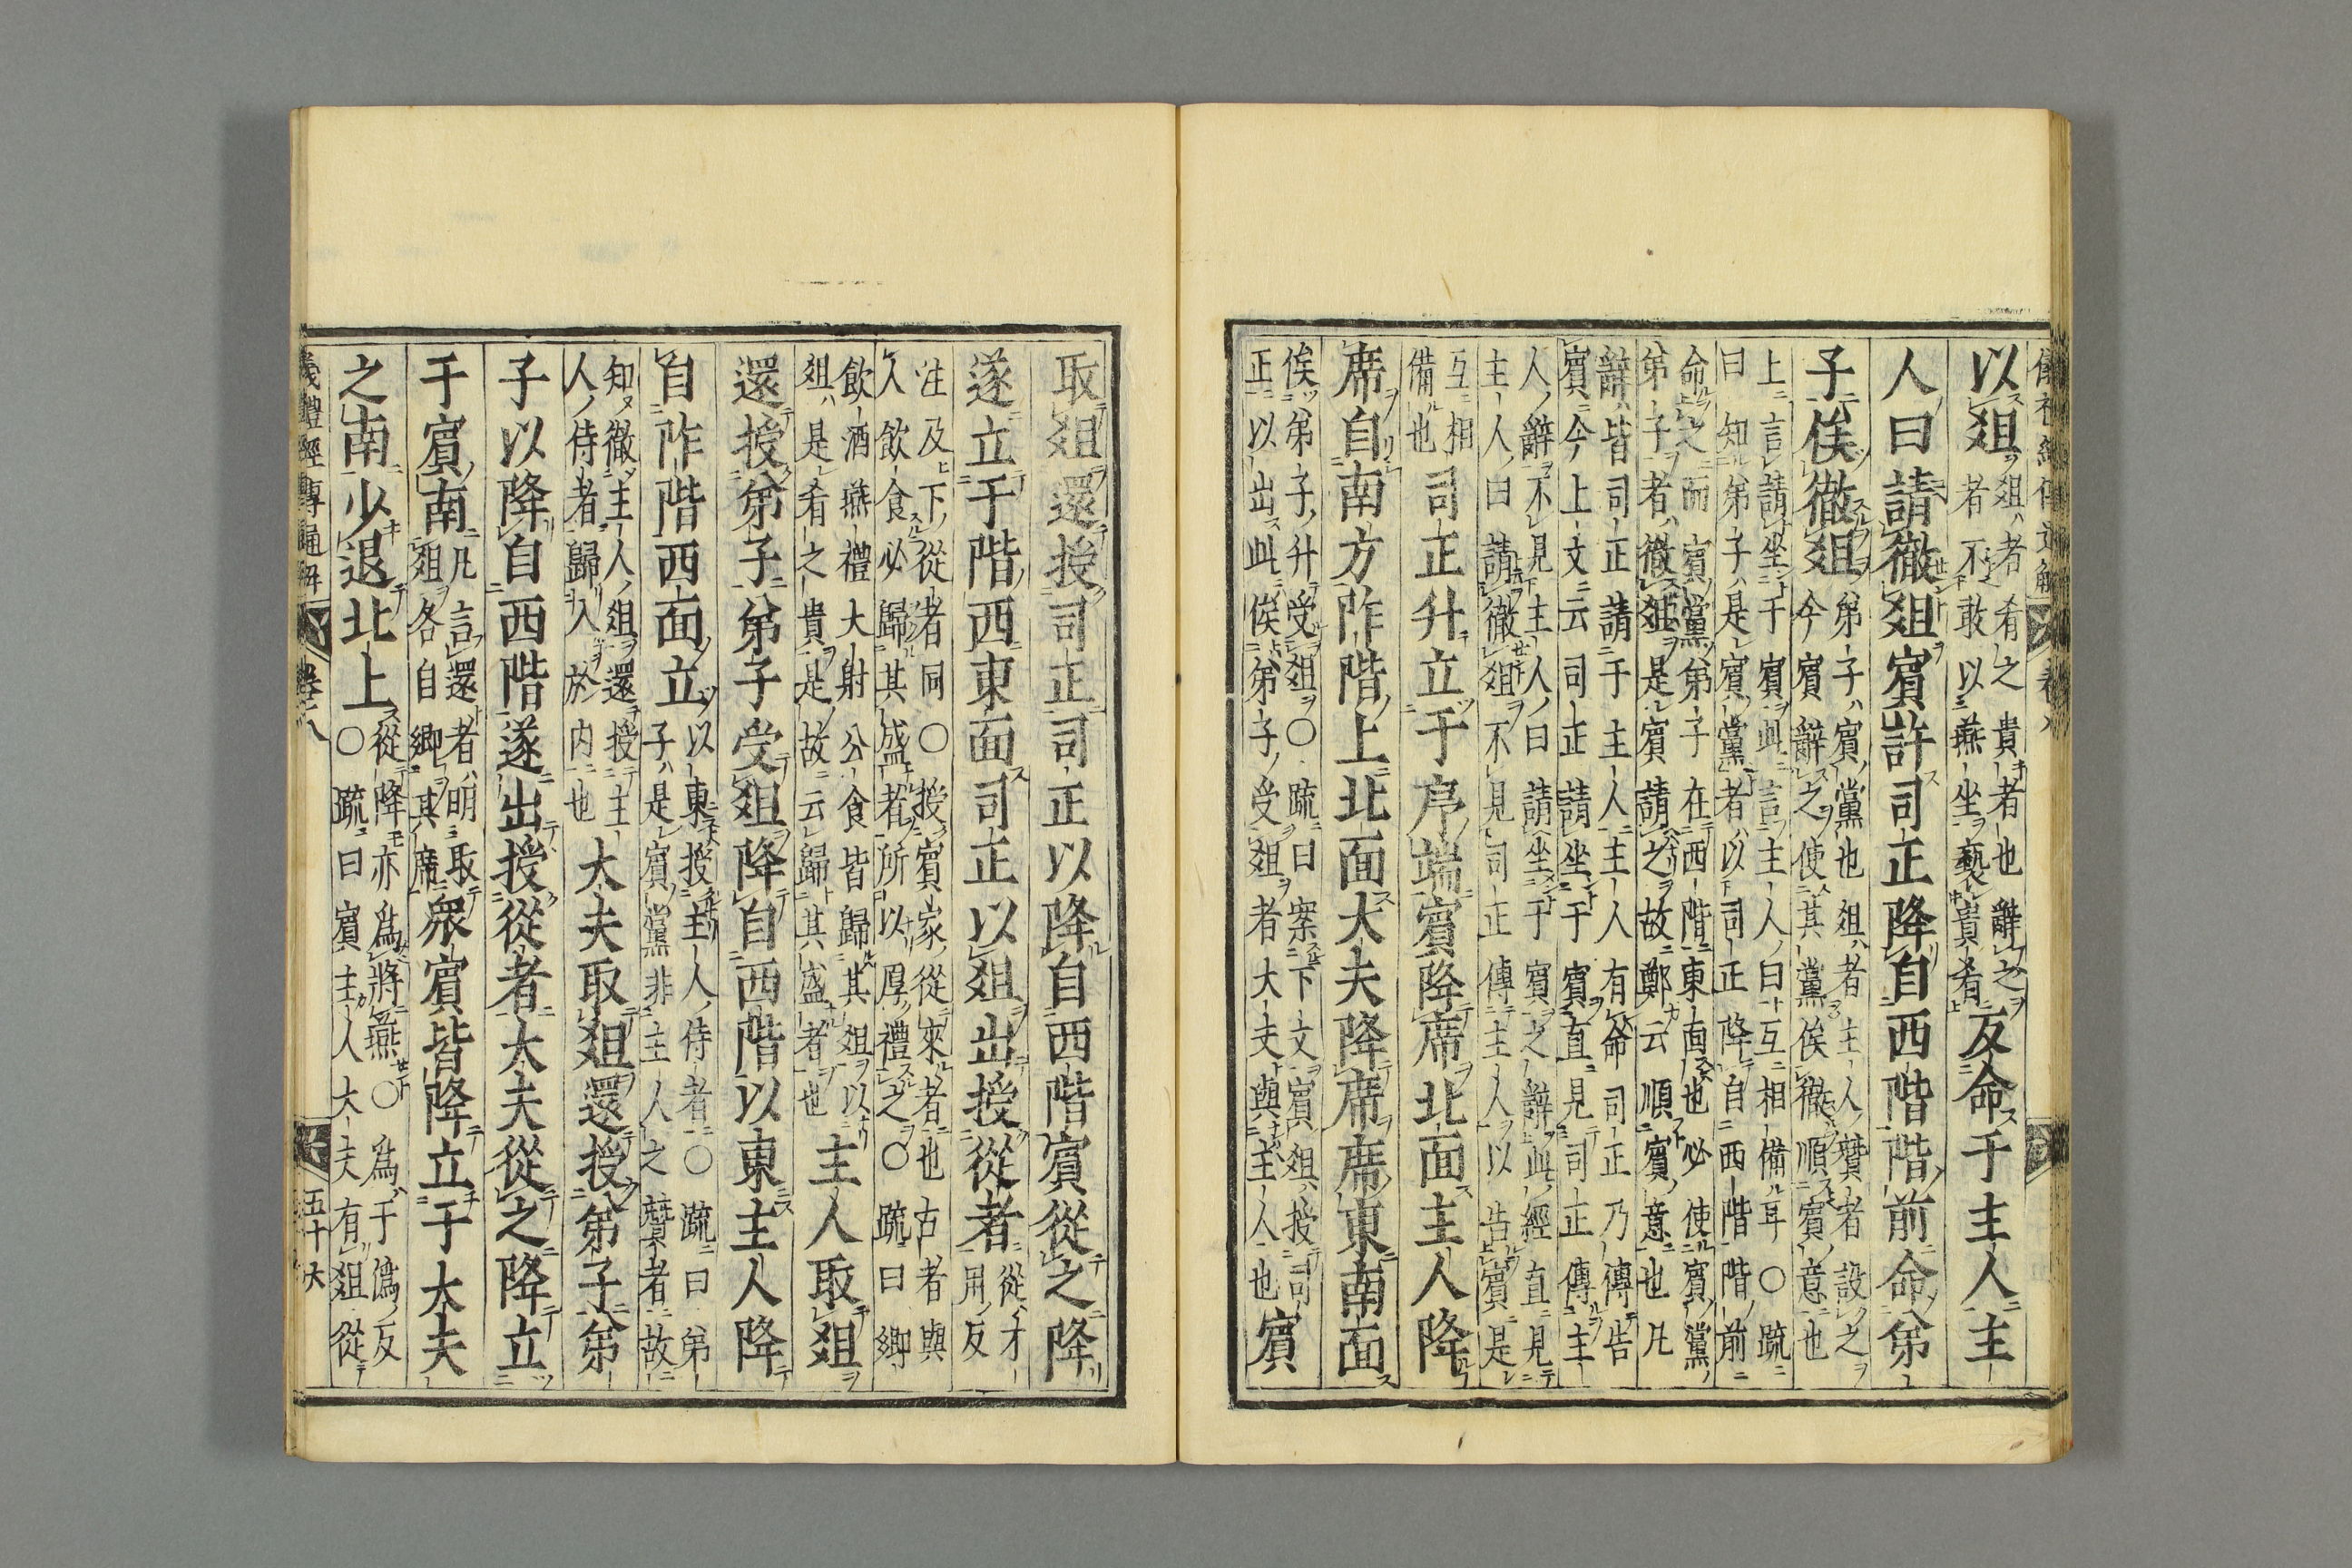 儀禮經傳通解 卷八
以俎
俎者肴之貴者也辭之
者不敢以燕坐褻貴肴
反命于主人主
人曰請徹俎賓許司正降自西階階前命弟
子俟徹俎
弟子賓黨也俎者主人贊者設之
今賓辭之使其黨俟徹順賓意也
上言請坐于賓此言主人曰互相備耳〇疏
曰知弟子是賓黨者以司正降自西階階前
命之而賓黨弟子在西階東面也必使賓黨
弟子者徹俎是賓請之故鄭云順賓意也凡
辭皆司正請于主人主人有命司正乃傳告
賓今上文云司正請坐于賓直見司正傳主
人辭不見主人曰請坐于賓之辭此經直見
主人曰請徹俎不見司正傳主人以告賓是
互相
備也
司正升立于序端賓降席北面主人降
席自南方阼階上北面大夫降席席東南面
俟弟子升受俎〇疏曰案下文賓俎授司
正以出此俟弟子受俎者大夫與主人也
賓
取俎還授司正司正以降自西階賓從之降
遂立于階西東面司正以俎出授從者
從才
用反
注及下從者同〇授賓家從來者也古者與
人飲食必歸其盛者所以厚禮之〇疏曰鄉
飲酒燕禮大射公食皆歸其俎以
俎是肴之貴是故云歸其盛者也
主人取俎
還授弟子弟子受俎降自西階以東主人降
自阼階西面立
以東授主人侍者〇疏曰弟
子是賓黨非主人之贊者故
知徹主人俎還授主
人侍者歸入於内也
大夫取俎還授弟子弟
子以降自西階遂出授從者大夫從之降立
于賓南
凡言還者明取
俎各自鄉其席
衆賓皆降立于大夫
之南少退北上
從降亦為將燕〇為于偽反
〇疏曰賓主人大夫有俎從
儀禮經傳通解 卷之八 五十六